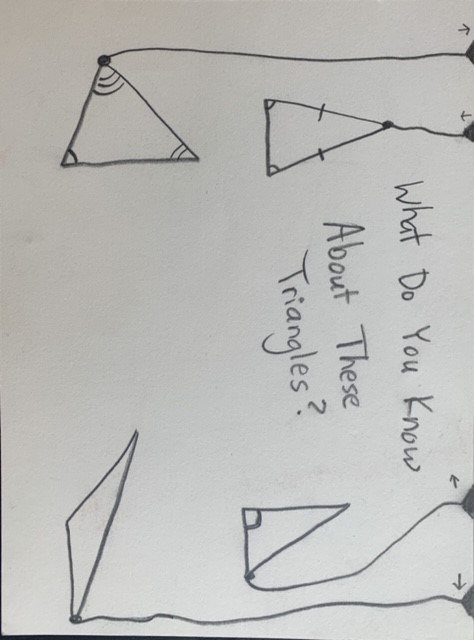 What Do You Know
About These
Triangles?